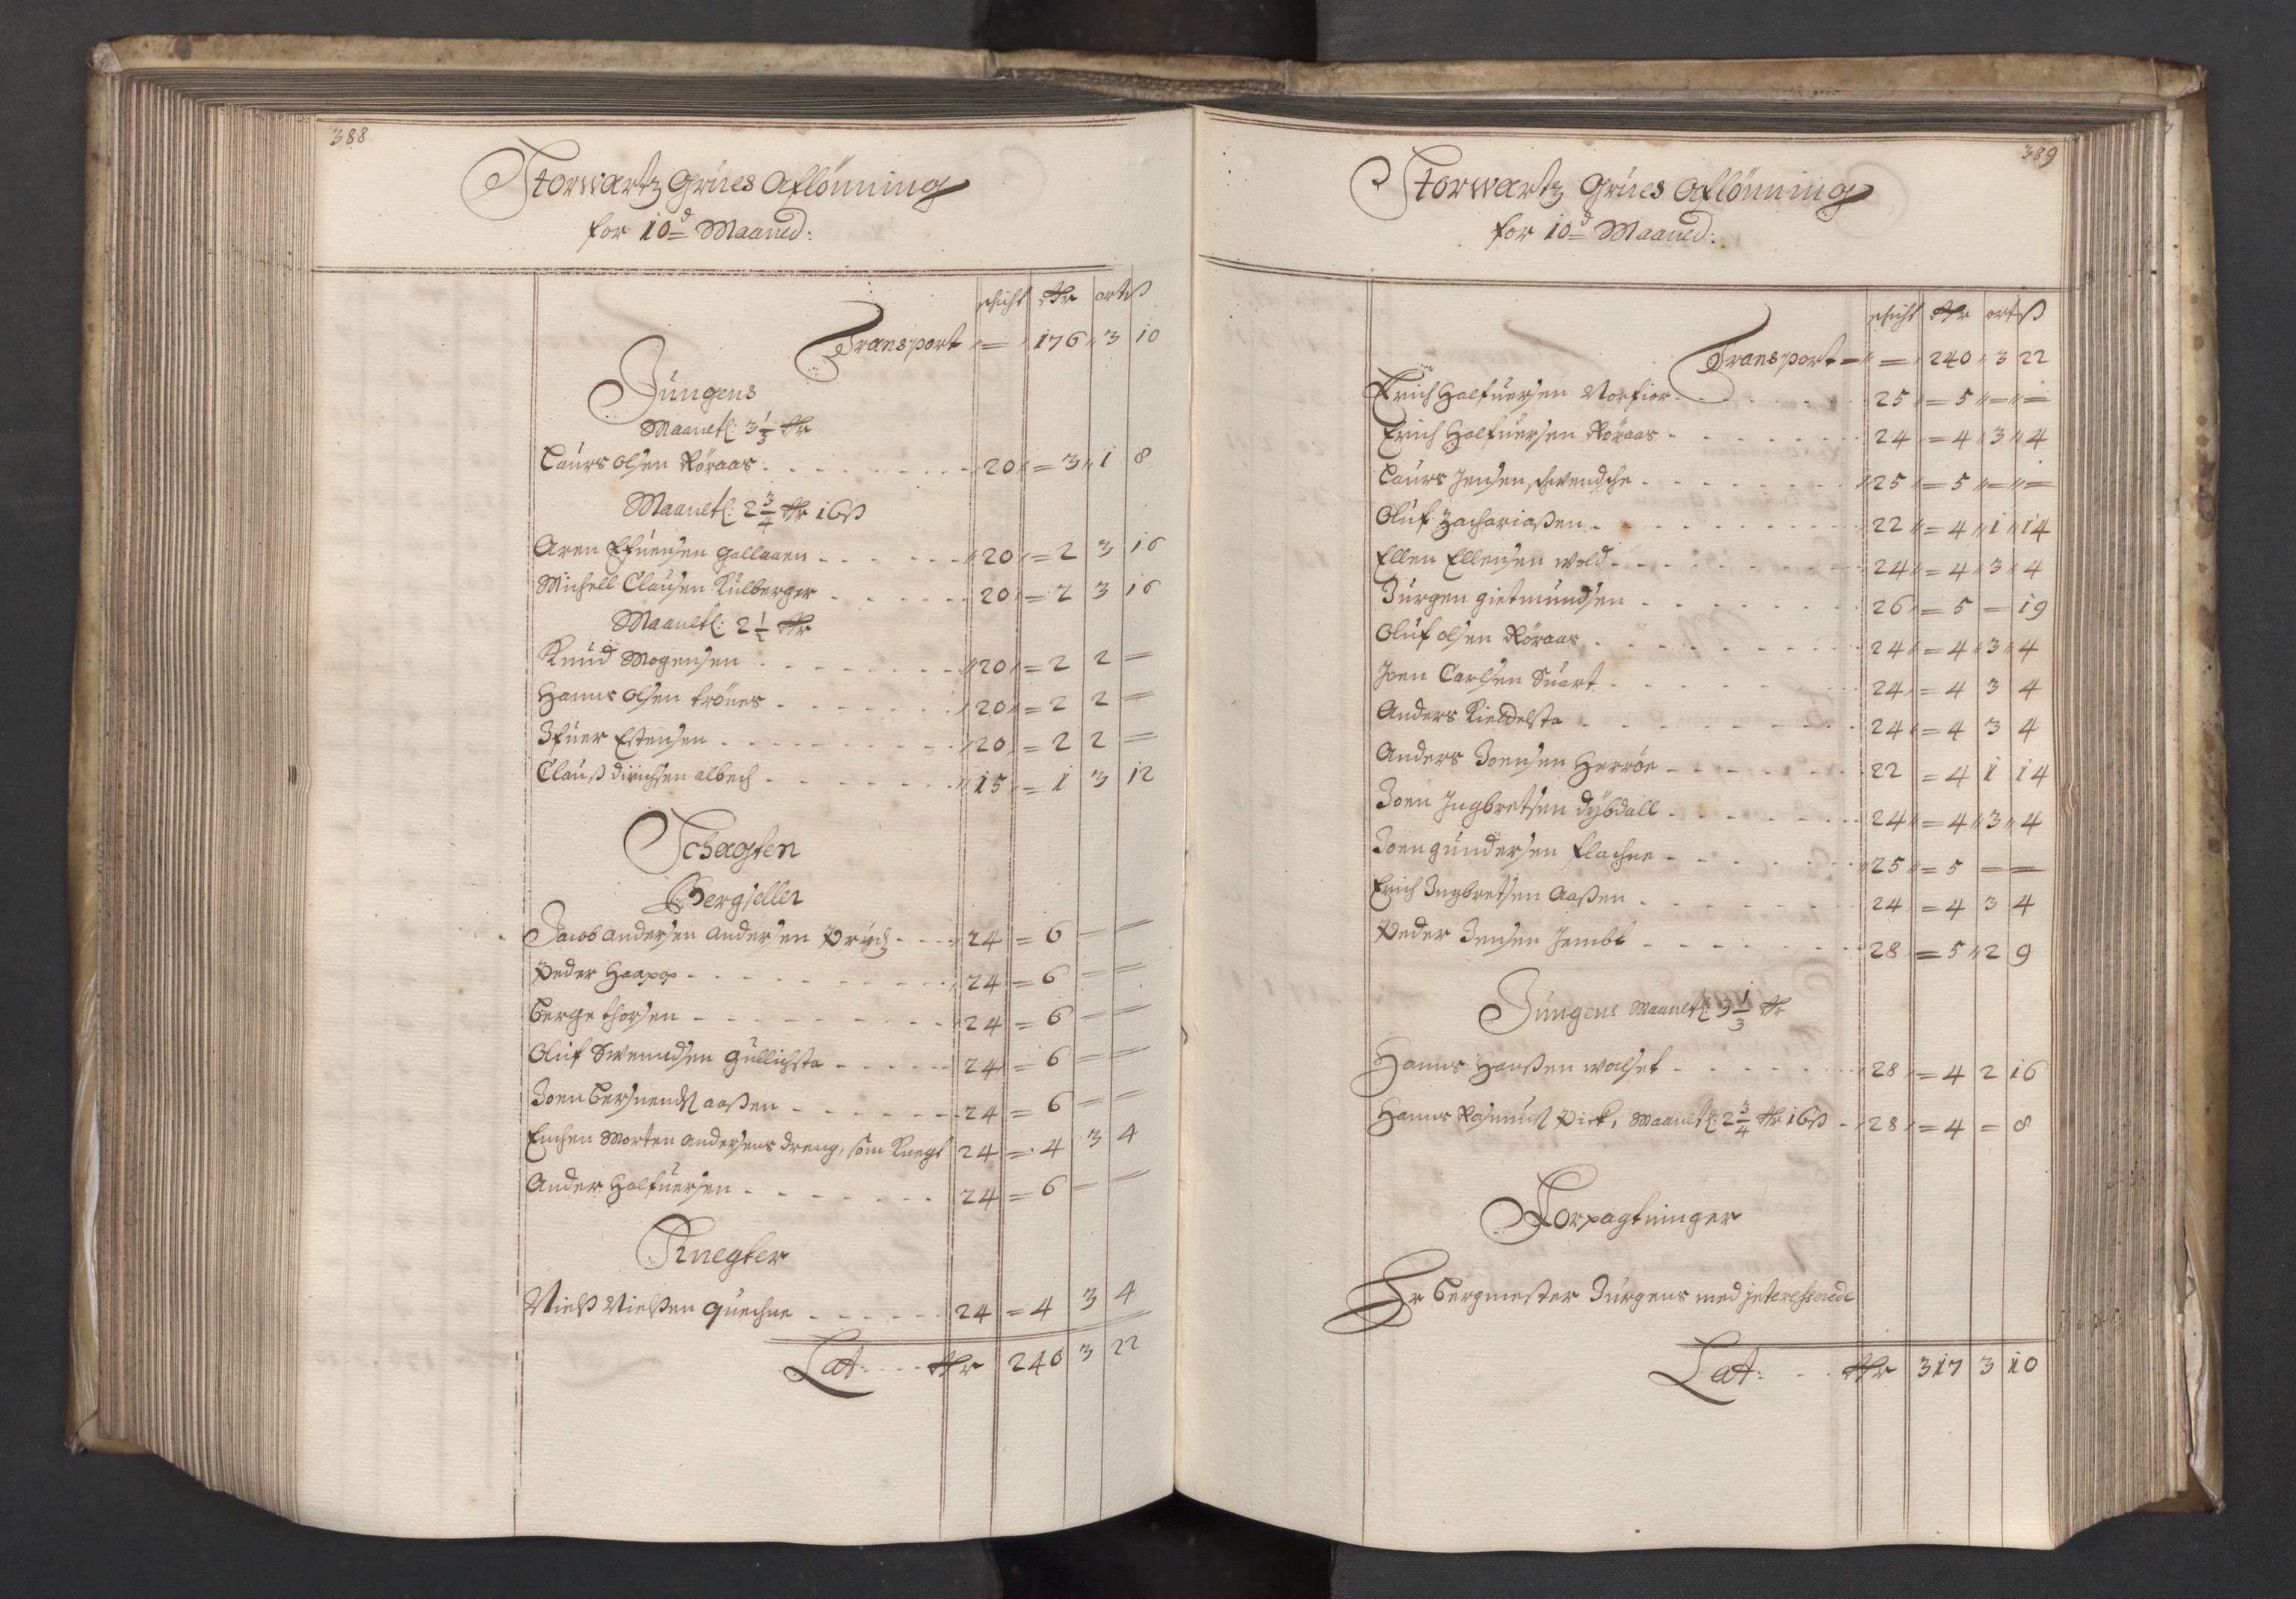 388
Storwartz Grues Aflönning
for 10d Maaned:
schicht Rdr ort ß
Transport = 176 3 10
Jungens
Maanetl: 3 1/3 Rdr
Laurs Olsen Röraas - - - 20 = 3 1 8
Maanetl: 2 3/4 Rdr 16 ß
Aren Efuensen Gallaaen - - - 20 = 2 3 16
Michell Clausen Kulberger - - - 20 = 2 3 16
Maanetl: 2 1/2 Rdr
Knud Mogensen - - - 20 = 2 2 =
Hanns Olsen Trönes - - - 20 = 2 2 =
Ifuer Estensen - - - 20 = 2 2 =
Clauß dirichsen albech - - - 15 = 1 3 12
Schagten
Bergseller
Jacob andersen andersen - - - 24 = 6 = =
Peder Haapp - - - 24 = 6 = =
Berge thorsen - - - 24 = 6 = =
Oluf Swendsen Gullichsta - - - 24 = 6 = =
Joen aaßen - - - 24 = 6 = =
Morten andersens dreng, som Knegt 24 = 4 3 4
Ander Halfuersen - - - 24 = 6 = =
Knegter
Nielß Nielßen Quechne - - - 24 = 4 3 4
Lat: - - - Rdr 240 3 22
389
Storwartz Grues Aflönning
for 10d Maaned:
schicht Rdr ort ß
Transport = = 240 3 22
Erich Halfuersen Norfior - - - 25 = 5 = =
Erich Halfuersen Röraas - - - 24 = 4 3 4
Laurs Jensen schwendche - - - 25 = 5 = =
Oluf Zachariaßen - - - 22 = 4 1 14
Ellen Ellensen wold - - - 24 = 4 3 4
Jürgen gietmundsen - - - 26 = 5 = 19
Oluf olsen Röraas - - - 24 = 4 3 4
Joen Carlsen Suart - - - 24 = 4 3 4
Anders Kieldelsta - - - 24 = 4 3 4
Anders Joensen Herröe - - - 22 = 4 1 14
Joen Ingbretsen dybdall - - - 24 = 4 3 4
Joen gundersen flachne - - - 25 = 5 = =
Erich Ingbretsen Aaßen - - - 24 = 4 3 4
Peder Jensen Jembt - - - 28 = 5 2 9
Jungens Maanetl: 3 1/3 Rdr
Hanns Hanßen wolset - - - 28 = 4 2 16
Hanns Rasmus Pick, Maanetl: 2 3/4 Rdr 16 ß - 28 = 4 = 8
Forpagtninger
Hr Bergmester Jürgens med
Lat: - - Rdr 317 3 10